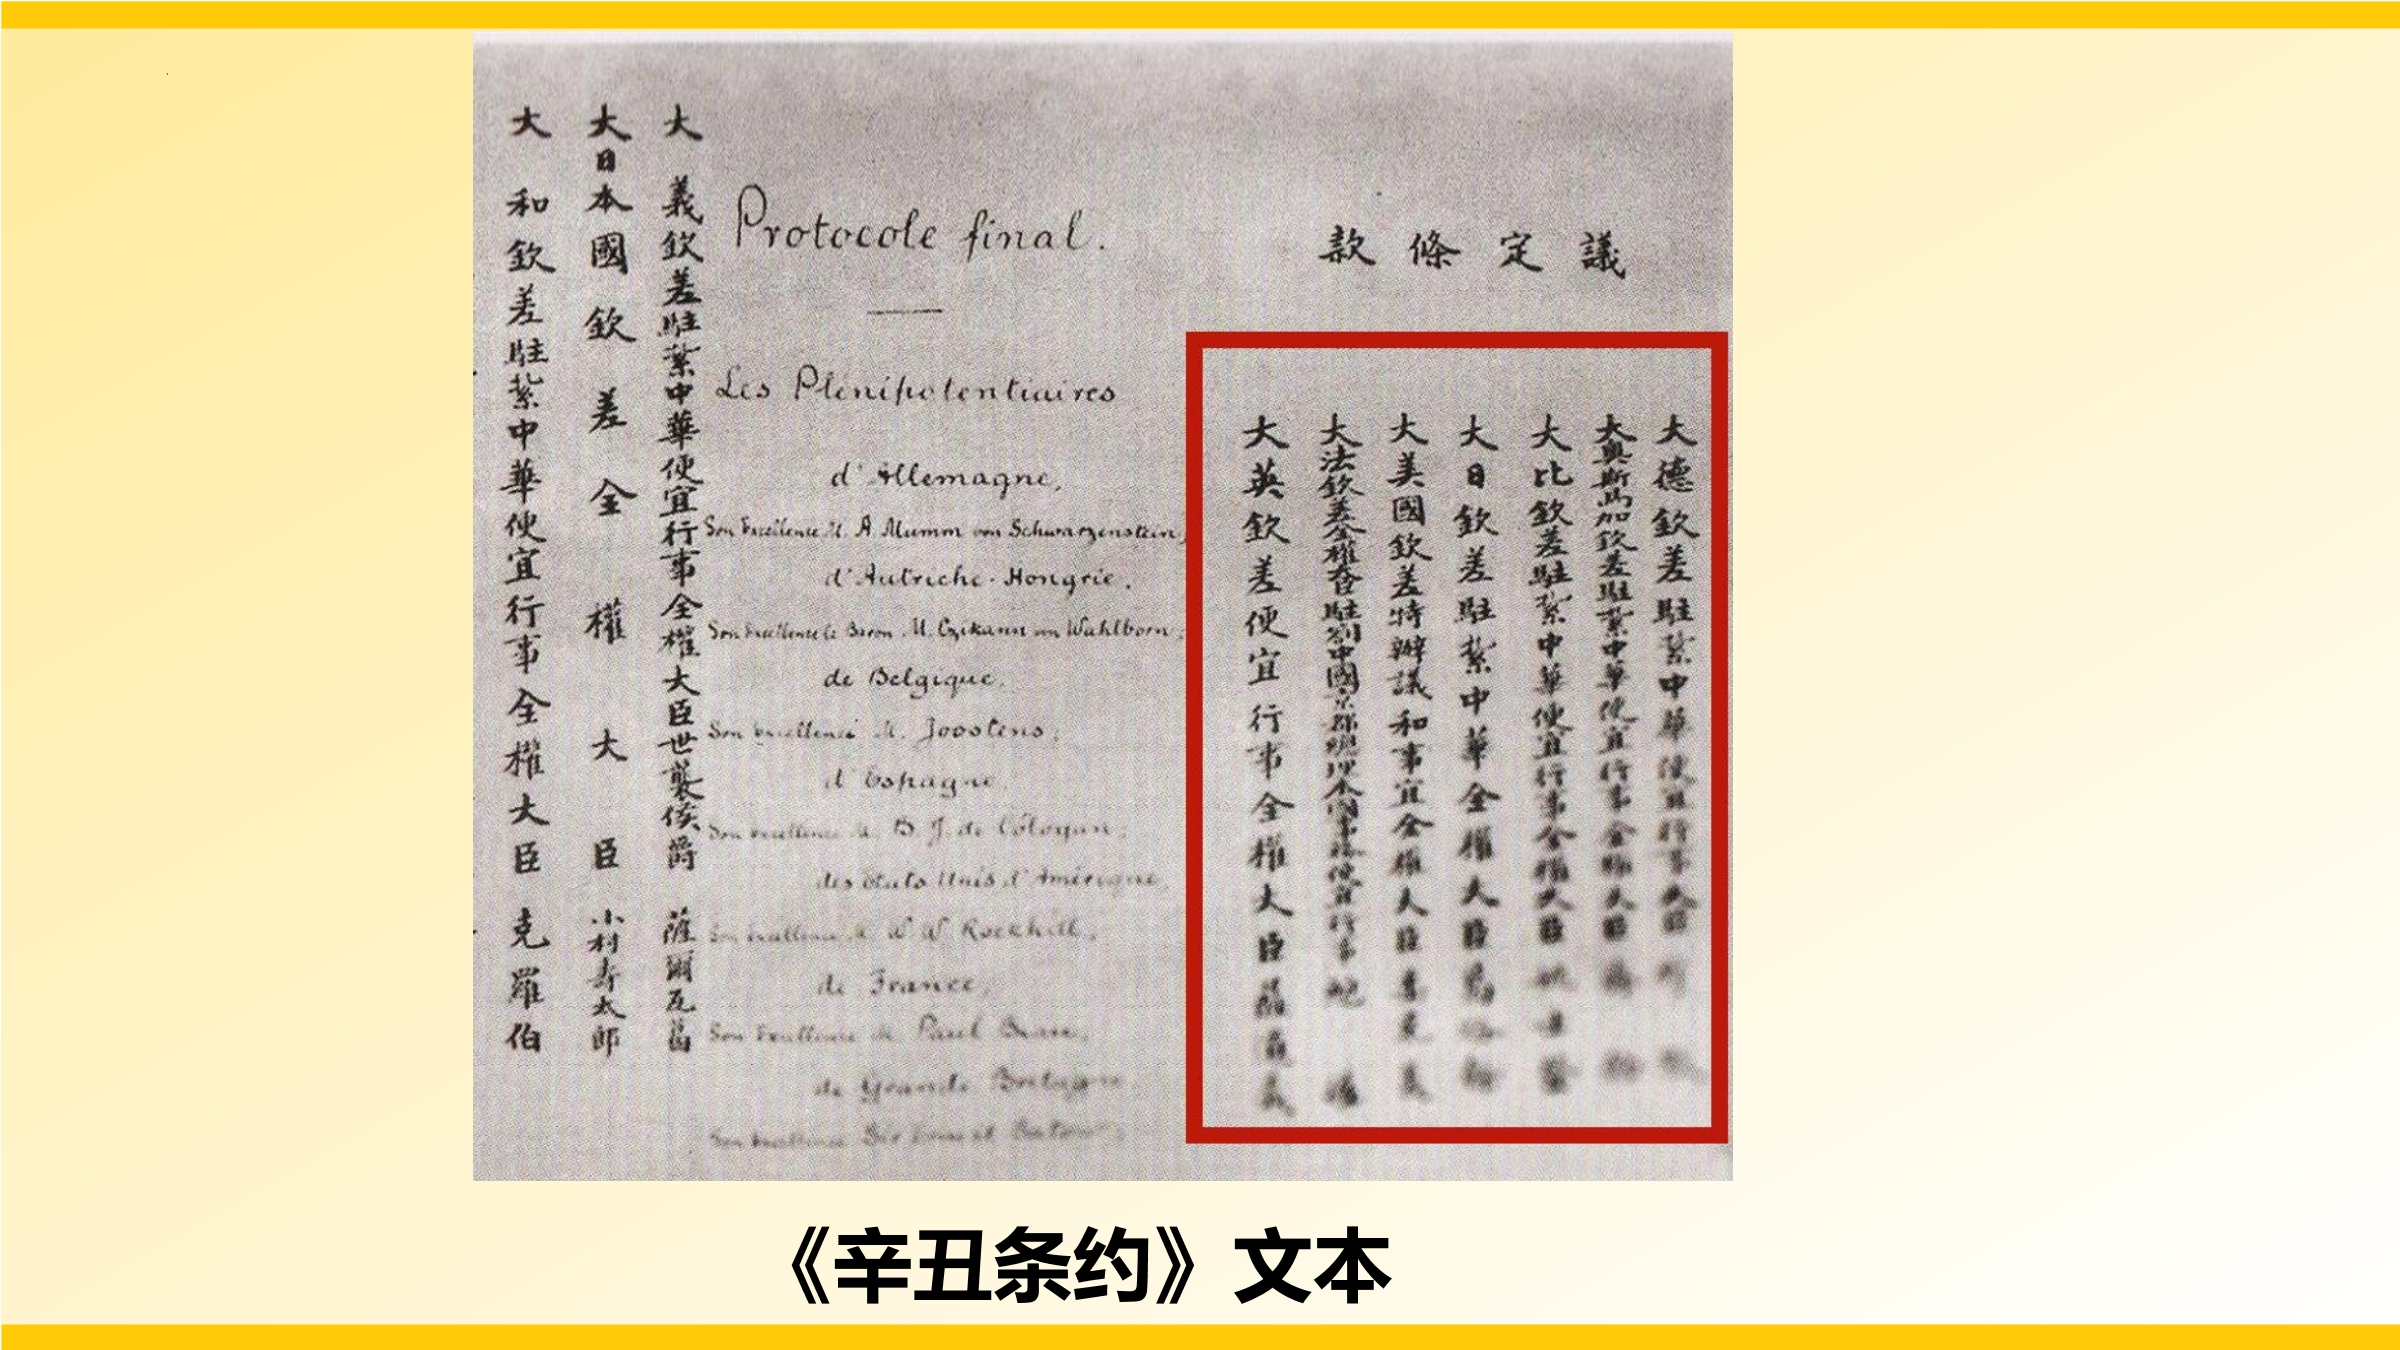 議定條款
大德欽差駐紮中華便宜行事大臣
大奧斯馬加欽差駐紮中華便宜行事全權大臣
大比欽差駐紮中華便宜行事全權大臣
大日欽差駐紮中華全權大臣
大美國欽差特辦議和事宜全權大臣
大法欽差全權大臣駐劄中國京都總理本國事務便宜行事
大英欽差便宜行事全權大臣薩
Protocole final.
Les Plénipotentiaires
d'Allemagne,
Son Excellence M. A. Mumm von Schwarzenstein,
d'Autriche-Hongrie,
Son Excellence le Baron M. Czikann von Wahlborn,
de Belgique,
Son Excellence M. Joostens,
d'Espagne,
Son Excellence M. B. J. de Cólogan,
des États Unis d'Amérique,
Son Excellence M. W. W. Rockhill,
de France,
Son Excellence M. Paul Beau,
de Grande Bretagne
Son Excellence Sir Ernest
大義欽差駐紮中華便宜行事全權大臣世襲侯爵薩爾瓦葛
大日本國欽差全權大臣小村寿太郎
大和欽差駐紮中華便宜行事全權大臣克羅伯
《辛丑条约》文本